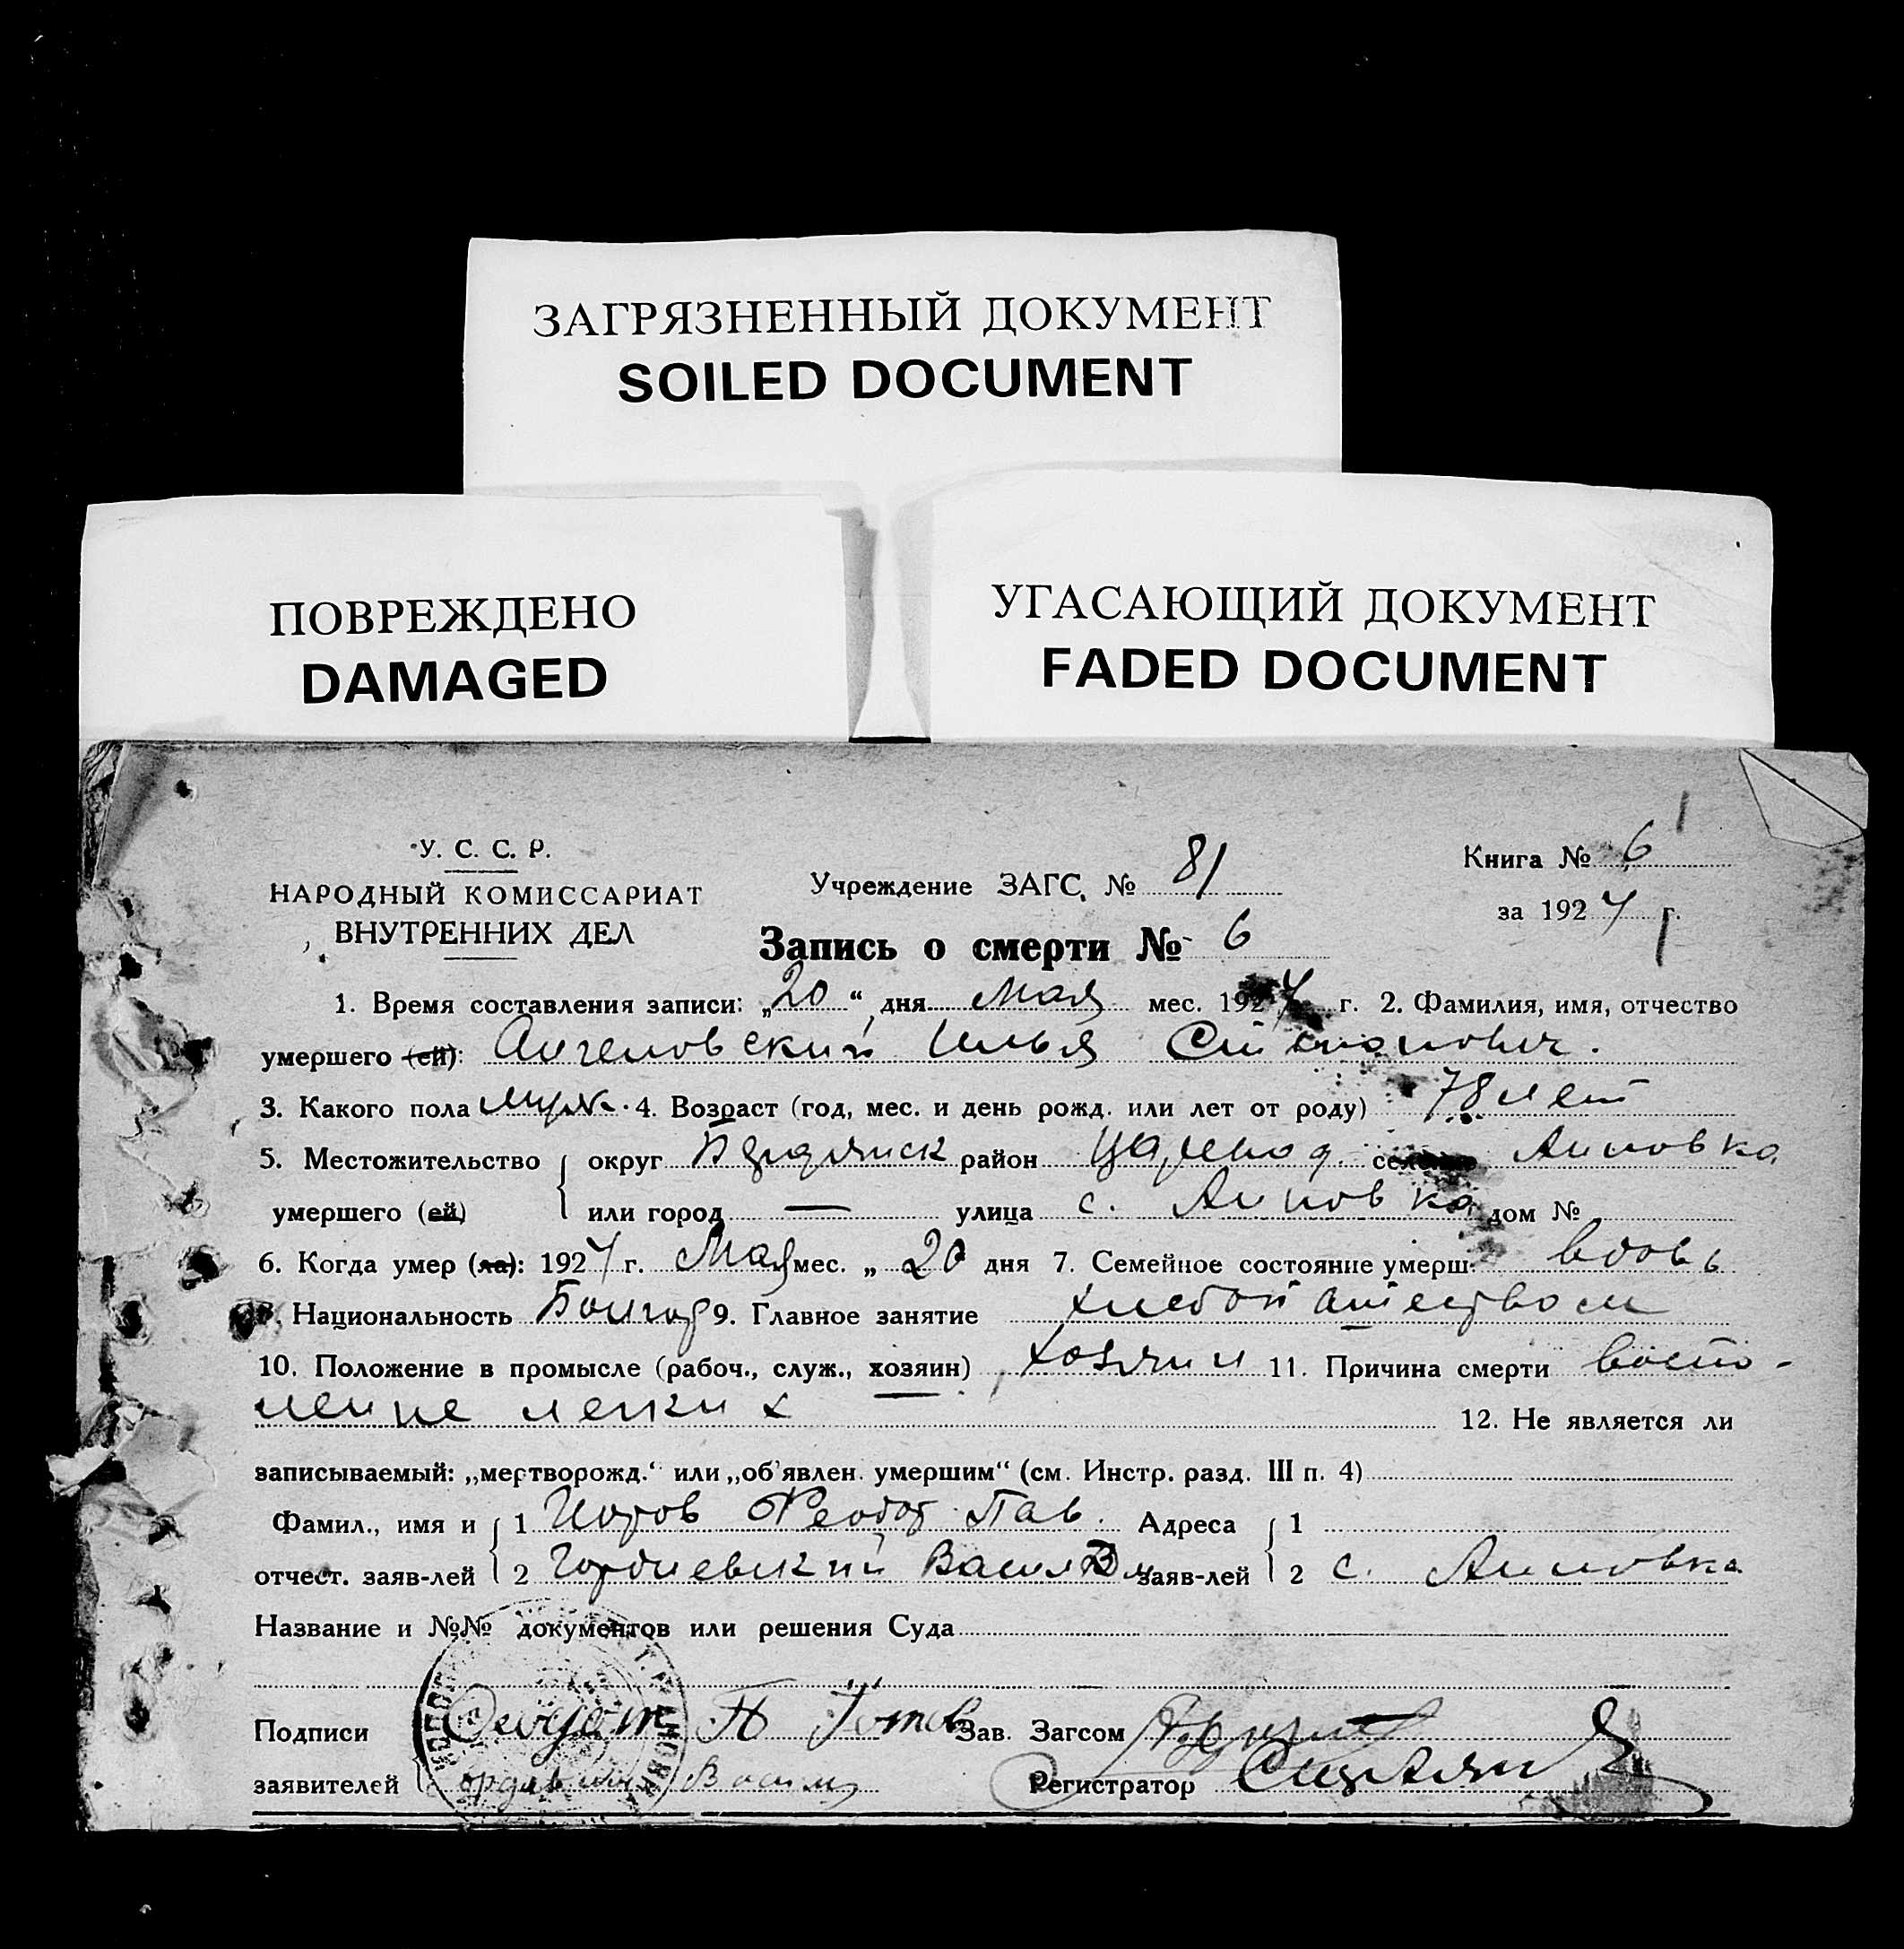 ЗАГРЯЗНЕННЫЙ ДОКУМЕНТ
SOILED DOCUMENT
ПОВРЕЖДЕНО
DAMAGED
УГАСАЮЩИЙ ДОКУМЕНТ
FADED DOCUMENT
У. С. С. Р.
НАРОДНЫЙ КОМИССАРИАТ
ВНУТРЕННИХ ДЕЛ
Учреждение ЗАГС, № 81
Запись о смерти № 6
Книга № 6
за 1927 г.
1. Время составления записи: „20“ дня Мая мес. 1927 г. 2. Фамилия, имя, отчество
умершего (ей): Ангеловский Илья Степанович.
3. Какого пола муж. 4. Возраст (год, мес. и день рожд. или лет от роду) 78 лет
5. Местожительство округ Бердянск район Царевод. Анновка
умершего (ей) или город — улица с. Анновка дом №
6. Когда умер (ла): 1927 г. Мая мес. „20 дня 7. Семейное состояние умерш. вдовь
Национальность Болгар 9. Главное занятие хлебопашеством
10. Положение в промысле (рабоч., служ., хозяин) хозяин 11. Причина смерти воспо-
ление легких 12. Не является ли
записываемый: „мертворожд.“ или „об'явлен. умершим“ (см. Инстр. разд. III п. 4)
Фамил., имя и 1 Феодот Пав. Адреса 1
отчест. заяв-лей 2 Гордиевский Васил заяв-лей 2 с. Анновка
Название и №№ документов или решения Суда
Подписи Феодот П Зав. Загсом
заявителей Васил Регистратор